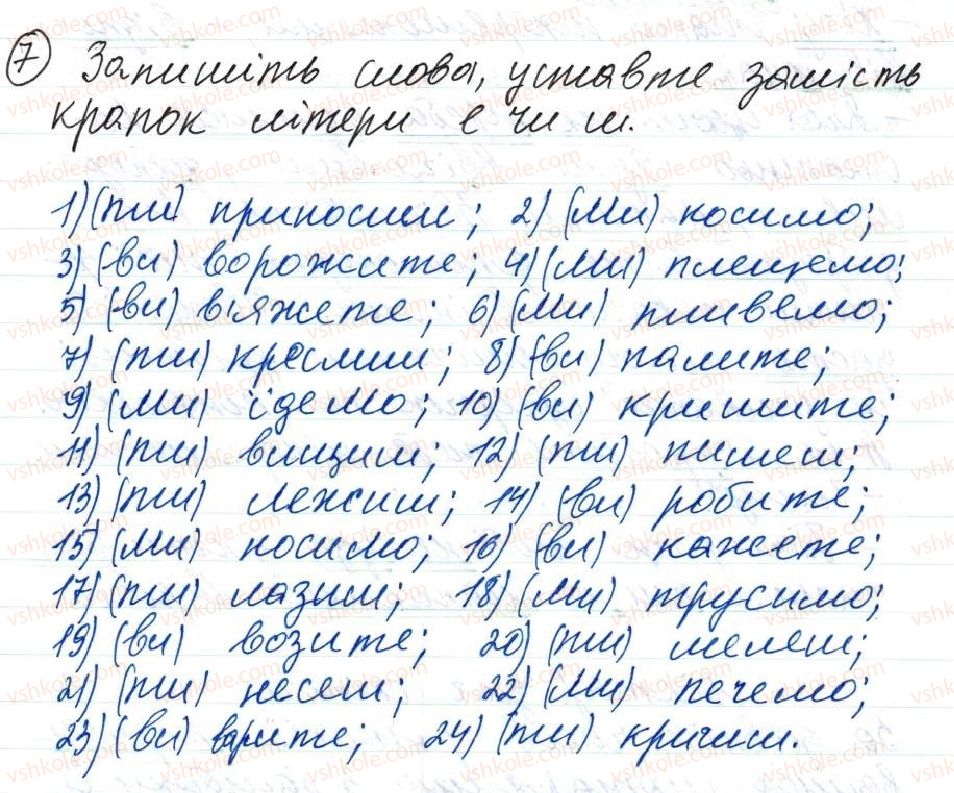 7 Запишіть слова, уставте замість
крапок літери е чи и.
1) (ти) приносиш; 2) (ми) косимо;
3) (ви) ворожите; 4) (ми) плещемо;
5) (ви) в'яжете; 6) (ми) пливемо;
7) (ти) креслиш; 8) (ви) палите;
9) (ми) ідемо; 10) (ви) кришите;
11) (ти) вищиш; 12) (ти) пилеш;
13) (ти) лежиш; 14) (ви) робите;
15) (ми) носимо; 16) (ви) кажете;
17) (ти) лазиш; 18) (ми) трусимо;
19) (ви) возите; 20) (ти) мелеш;
21) (ти) несеш; 22) (ми) печемо;
23) (ви) варите; 24) (ти) кричиш.